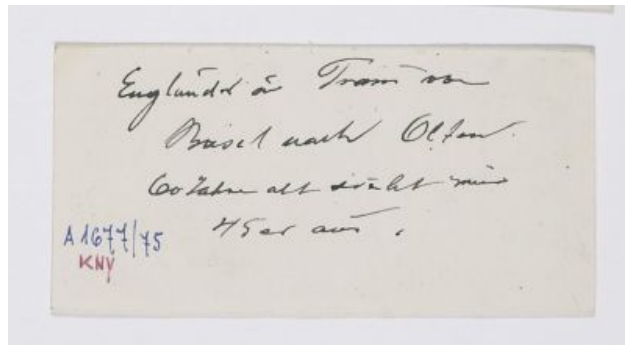 Engländer im Train von
Basel nach Olten.
60 Jahre alt sieht wie
45er aus.
A 1677/75
KNY